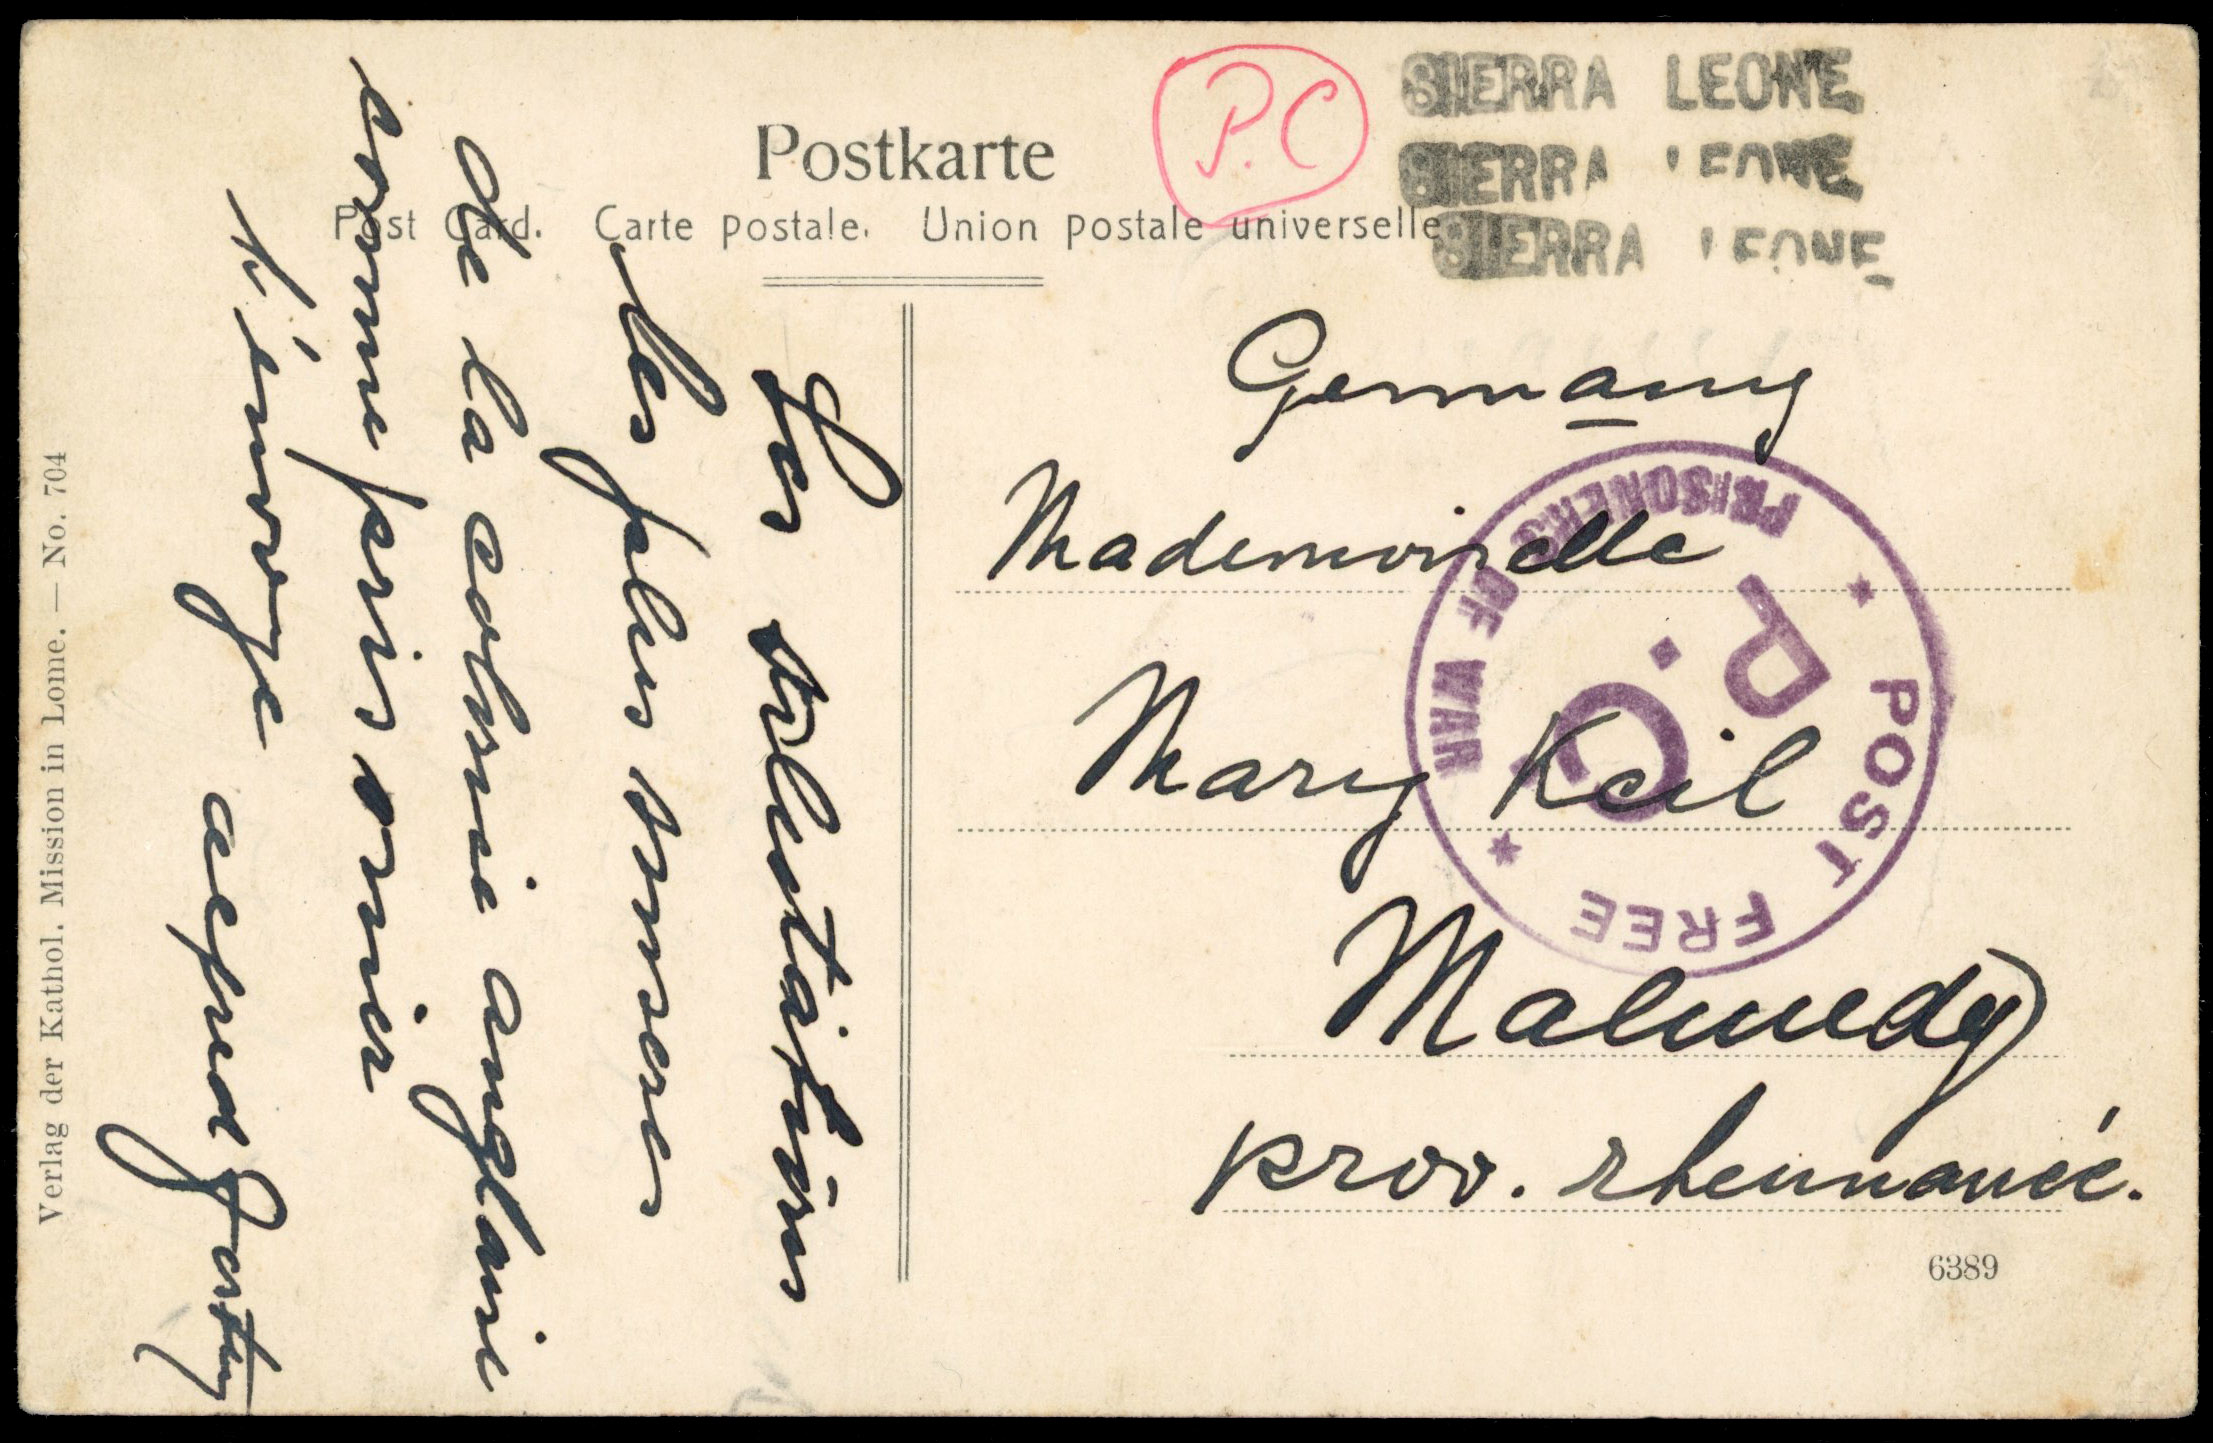 SIERRA LEONE
SIERRA LEONE
SIERRA LEONE
P.C
Postkarte
Post Card. Carte postale. Union postale universelle
Germany
Mademoiselle
Mary Keil
Malmedy
prov. rhennanie.
PRISONERS OF WAR
P.C.
POST FREE
6389
Les salutations
les plus sinceres
de la colonie anglaise
comme prisonier
t'envoye
Verlag der Kathol. Mission in Lome. — No. 704